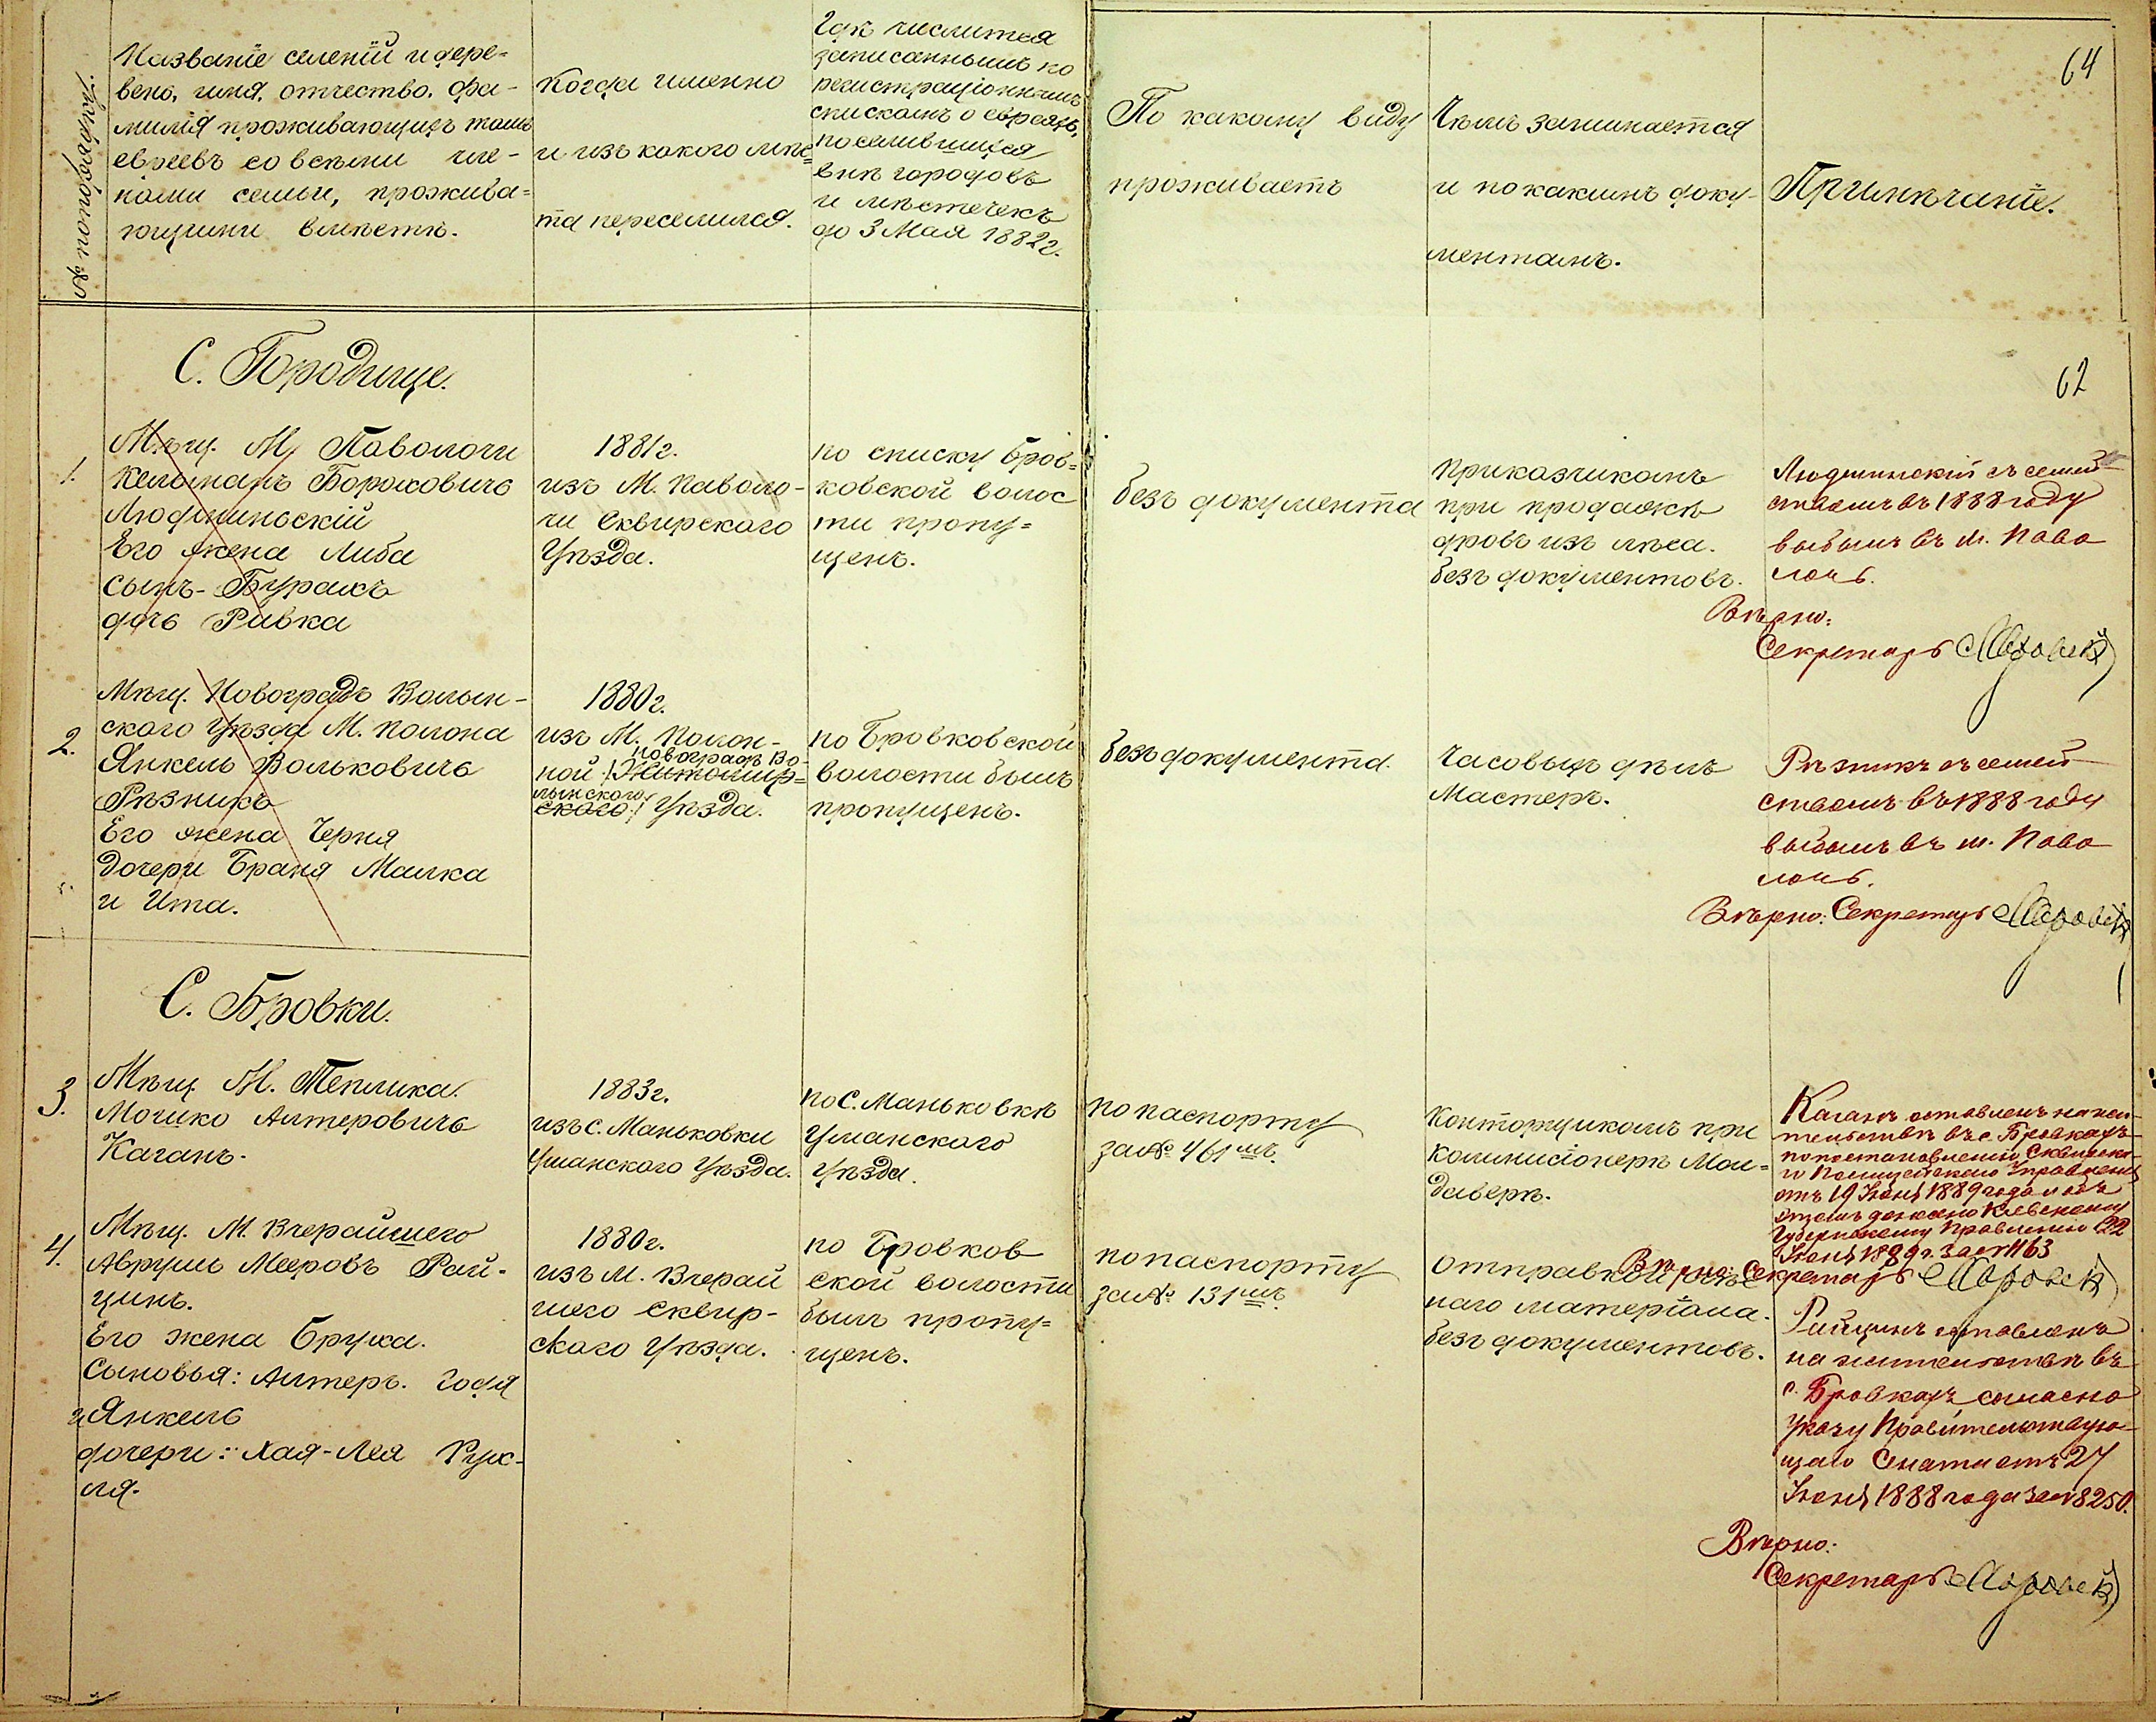 № по порядку.
Названіе селеній и дере-
вень, имя, отчество, фа-
милія проживающихъ тамъ
евреевъ со всѣми чле-
нами семьи, прожива-
ющими вмѣстѣ.
Когда именно
и изъ какого мѣс-
та переселился.
Гдѣ числится
записаннымъ по
регистраціоннымъ
спискамъ о евреяхъ,
поселившихся
внѣ городовъ
и мѣстечекъ
до 3 Мая 1882 г.
По какому виду
проживаетъ
Чѣмъ занимается
и по какимъ доку-
ментамъ.
Примѣчаніе.
64
С. Городище.
62
1.
Мѣщ. М. Паволочи
Кельманъ Бороховичъ
Людминьскій
Его жена Либа
сынъ - Бурахъ
дочь Ривка
1881 г.
изъ М. Паволо-
чи Сквирскаго
Уѣзда.
по списку Бров-
ковской волос
ти пропу-
щенъ.
безъ документа
Приказчикомъ
при продажѣ
дровъ изъ лѣса.
безъ документовъ.
Людминскій съ семей-
ствомъ въ 1888 году
выбылъ въ м. Паво
лочь.
Вѣрно:
Секретарь
2.
Мѣщ. Новоградъ Волын-
скаго Уѣзда М. Полона
Янкель Вольковичъ
Рѣзникъ
Его жена Черня
Дочери Браня Малка
и Ита.
1880 г.
изъ М. Полон-
новоградъ Во-
ной Житомир-
лынскаго
скаго Уѣзда.
по Бровковской
волости былъ
пропущенъ.
безъ документа.
Часовыхъ дѣлъ
Мастеръ.
Рѣзникъ съ семей
ствомъ въ 1888 году
выбылъ въ м. Паво
лочь.
Вѣрно: Секретарь
С. Бровки.
3.
Мѣщ. М. Теплика.
Мошко Алтеровичъ
Каганъ.
1883 г.
изъ с. Маньковки
Уманскаго Уѣзда.
по С. Маньковкѣ
Уманскаго
Уѣзда.
по паспорту
за № 461 мъ.
Конторщикомъ при
коммисіонерѣ Мон-
даверѣ.
Каганъ оставленъ на жи-
тельствѣ въ с. Бровкахъ
по постановленію Сквирска-
го Полицейскаго Управленія
отъ 19 Іюня 1889 года о чемъ
донесено Кіевскому
Губернскому Правленію 22
Іюня 1889 г. за № 1163
Вѣрно: Секретарь
4.
Мѣщ. М. Вчерайшего
Аврумъ Мееровъ Рай-
цинъ.
Его жена Бруха.
Сыновья: Алтеръ. Годя
и Янкель
дочери: Хая-Лея Рух-
ля.
1880 г.
изъ М. Вчерай
шего Сквир-
скаго Уѣзда.
по Бровков
ской волости
былъ пропу-
щенъ.
по паспорту
за № 131 мъ.
Отправкой
наго матеріала.
безъ документовъ.
Райцинъ оставленъ
на жительствѣ въ
с. Бровкахъ согласно
указу Правительствую-
щаго Сената отъ 27
Іюня 1888 года за № 8250.
Вѣрно:
Секретарь